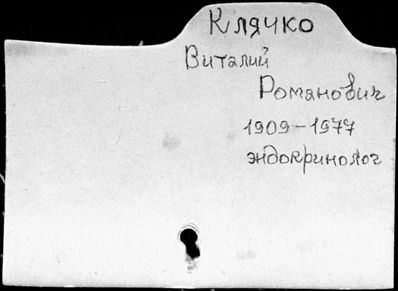 Клячко
Виталий
Романович
1909-1977
эндокринолог